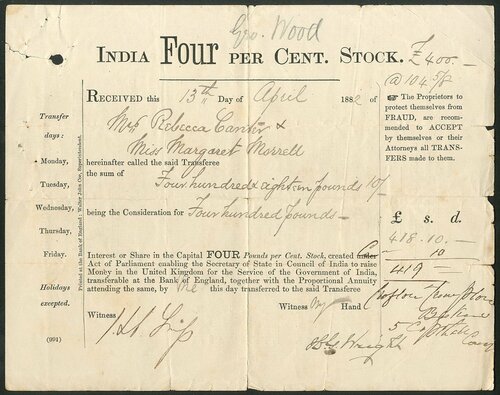 Geo. Wood
INDIA Four PER CENT. STOCK. £400.—
@ 104 5/8
RECEIVED this 13th Day of April 1882 of
Mrs Rebecca &
Miss Margaret Morrell
hereinafter called the said Transferee
the sum of
Four hundred & eighteen pounds 10/-
being the Consideration for Four hundred pounds —
Interest or Share in the Capital FOUR Pounds per Cent. Stock, created under
Act of Parliament enabling the Secretary of State in Council of India to raise
Monby in the United Kingdom for the Service of the Government of India,
transferable at the Bank of England, together with the Proportional Annuity
attending the same, by Me this day transferred to the said Transferee
Witness My Hand
Witness
Transfer
days:
Monday,
Tuesday,
Wednesday,
Thursday,
Friday.
Holidays
excepted.
(991)
Printed at the Bank of England: Walter John Coe, Superintendent.
☞ The Proprietors to
protect themselves from
FRAUD, are recom-
mended to ACCEPT
by themselves or their
Attorneys all TRANS-
FERS made to them.
£ s. d.
418.10.—
10
419 —
Wright